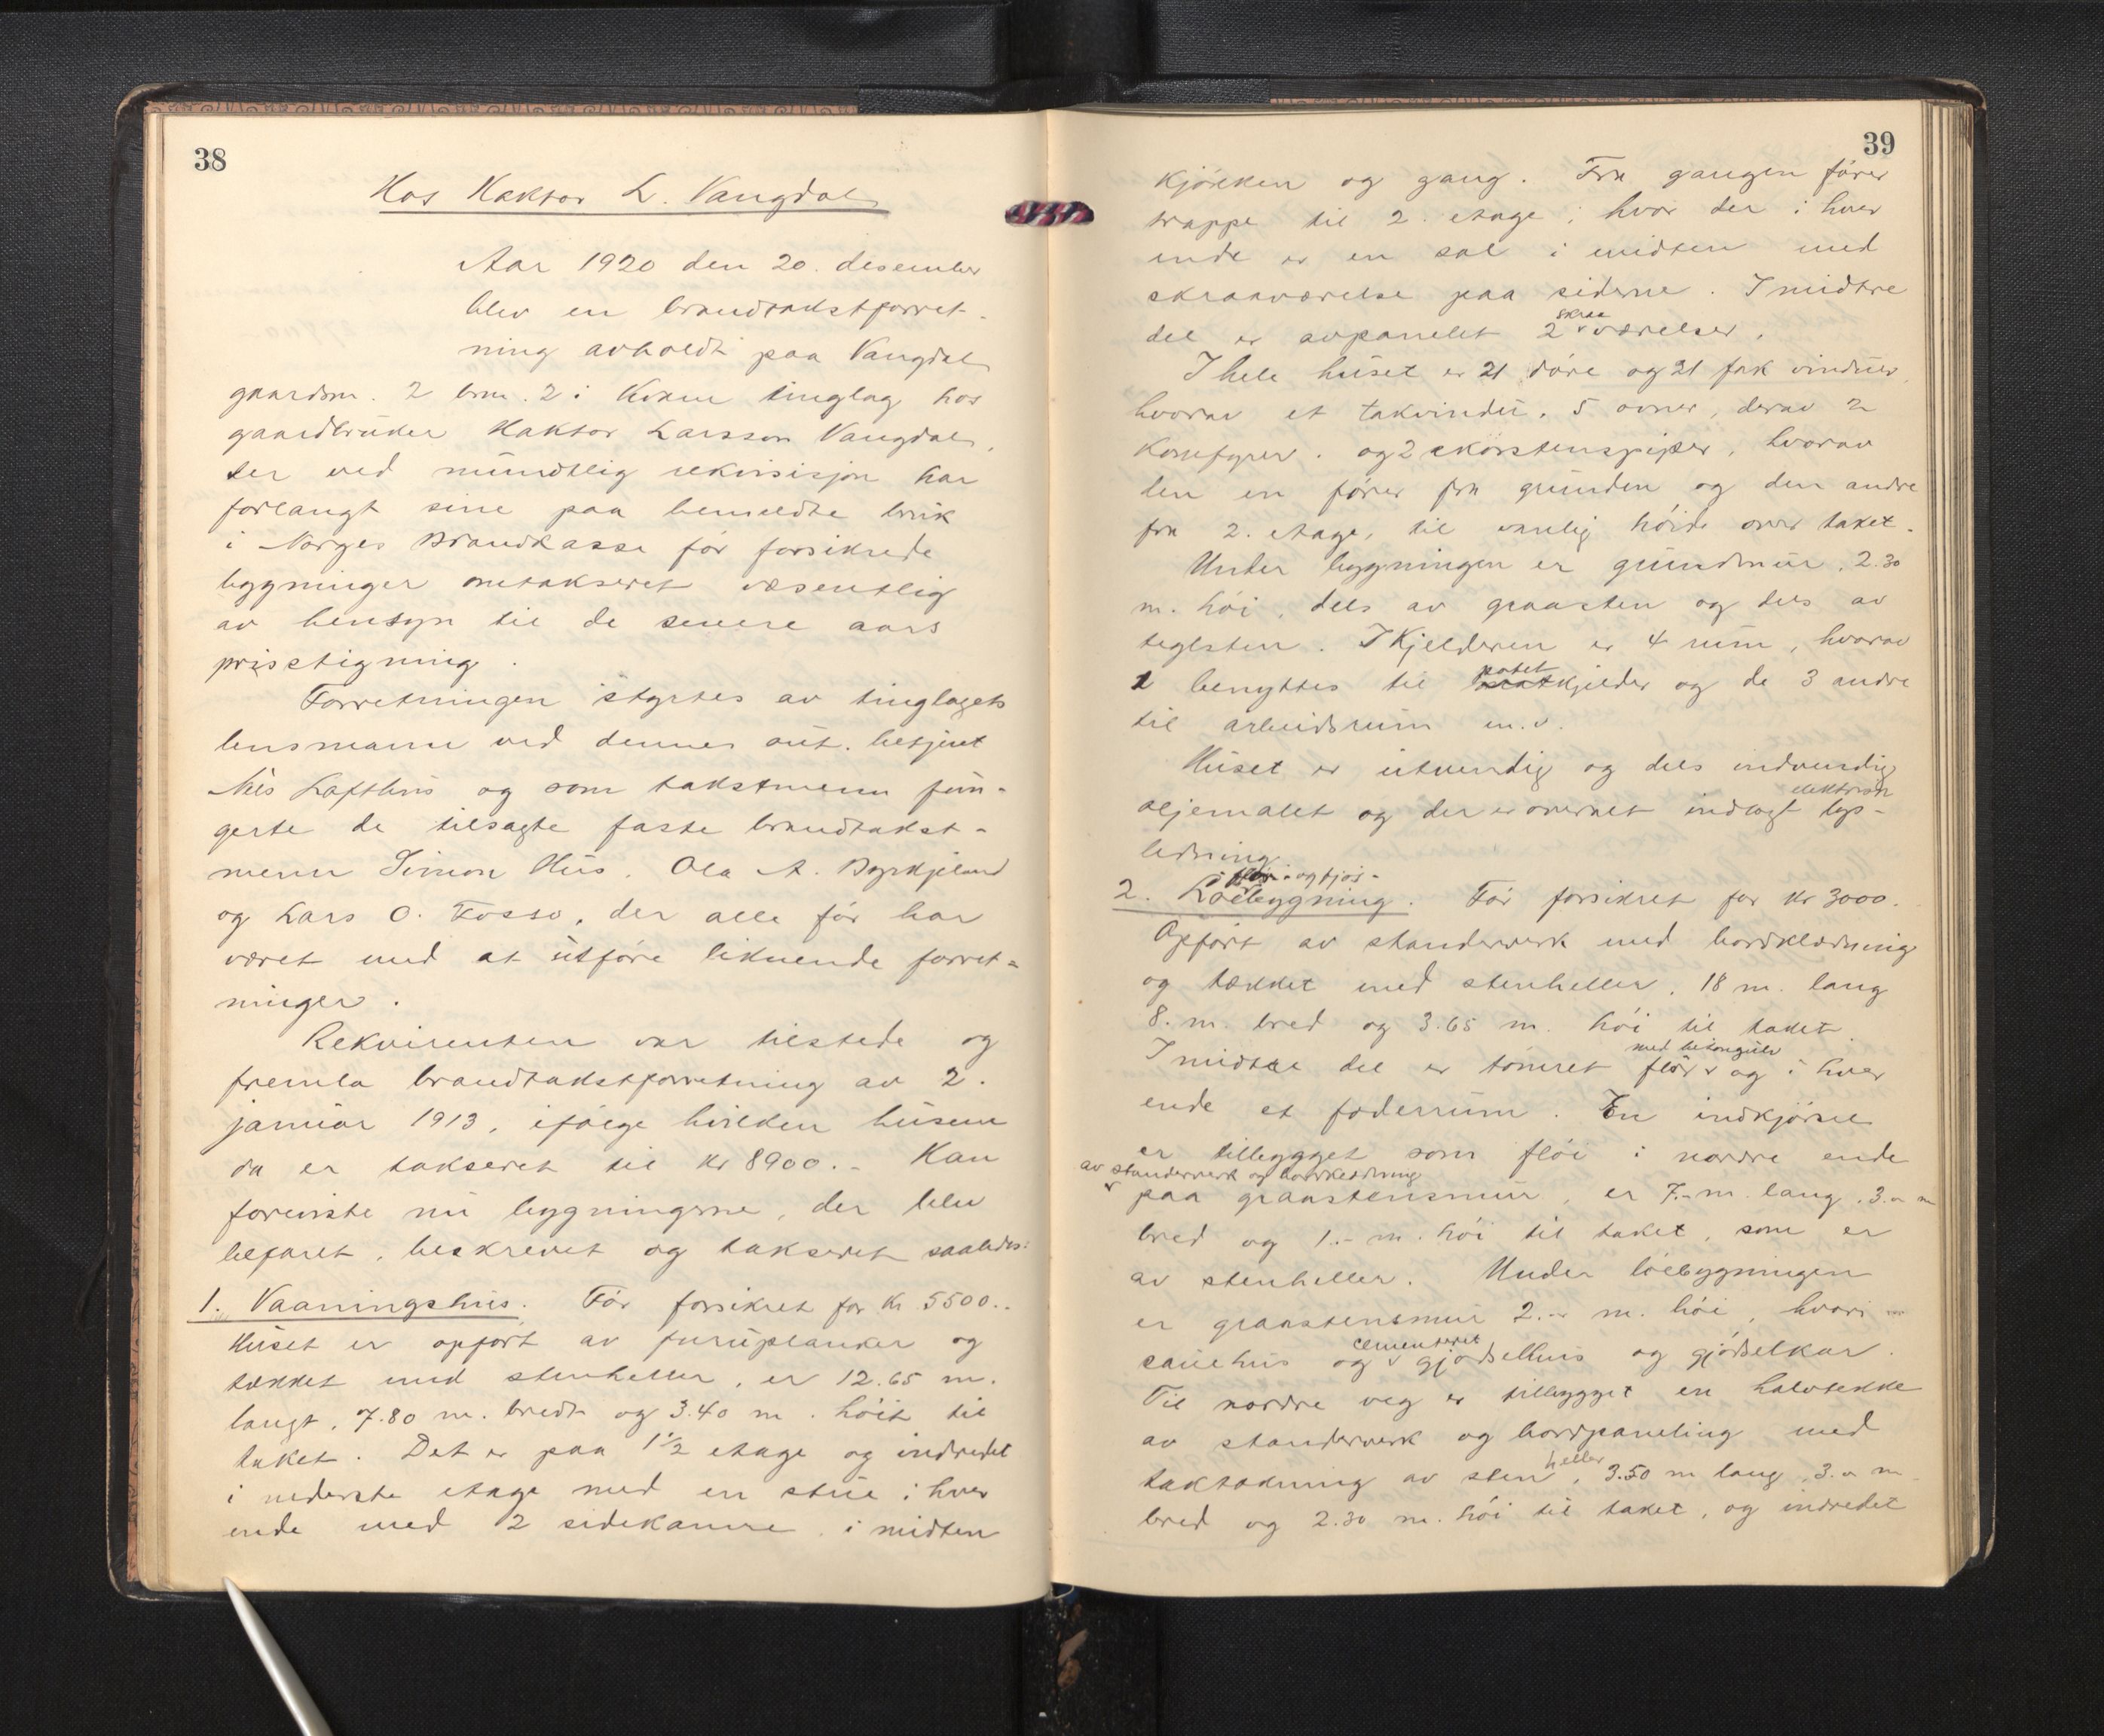 38
Hos Haktor L. Vangdal
Aar 1920 den 20. desember
blev en brandtakstforret-
ning avholdt paa Vangdal
gaardsnr. 2 brnr. 2 i Kvam tinglag hos
gaardbruker Haktor Larsson Vangdal,
der ved mundtlig rekvisisjon har
forlangt sine paa bemeldte bruk
i Norges Brandkasse før forsikrede
bygninger omtakseret væsentlig
av hensyn til de senere aars
prisstigning.
Forretningen styrtes av tinglagets
lensmann ved dennes aut. betjent
Nils Lofthus og som takstmenn fun-
gerte de tilsagte faste brandtakst-
menn Simon Hus, Ola A. Byrkjeland
og Lars O. Fosso, der alle før har
været med at utføre liknende forret-
ninger.
Rekvirenten var tilstede og
fremla brandtakstforretning av 2.
januar 1913, ifølge hvilken husene
da er takseret til kr 8900.- Han
foreviste nu bygningerne, der blev
befaret, beskrevet og takseret saaledes:
1. Vaaningshus. Før forsikret for kr 5500.-
Huset er opført av furuplanker og
tækket med stenheller, er 12.65 m.
langt, 7.80 m. bredt og 3.40 m. høit til
taket. Det er paa 1½ etage og indredet
i nederste etage med en stue i hver
ende med 2 sidekamre, i midten
39
kjøkken og gang. Fra gangen fører
trappe til 2. etage, hvor der i hver
ende er en sal i midten med
skraaværelse paa siderne. I midtre
del er avpanelet 2 skraaværelser.
I hele huset er 21 døre og 21 fak vinduer,
hvorav et takvindu, 5 ovner, derav 2
komfyrer, og 2 skorstenspiper, hvorav
den en fører fra grunden og den andre
fra 2. etage, til vanlig høide over taket.
Under bygningen er grundmur, 2.30
m. høi, dels av graasten og dels av
teglsten. I Kjelderen er 4 rum, hvorav
1 benyttes til potetkjelder og de 3 andre
til arbeidsrum m.v.
Huset er utvendig og dels indvendig
oljemalet og der er overalt indlagt elektrisk lys-
ledning.
2. Løe- og fjøsbygning. Før forsikret for kr 3000.
Opført av standerverk med bordklædning
og tækket med stenheller, 18 m. lang
8. m. bred og 3.65 m. høi til taket.
I midtre del er tømret flor med betongulv og i hver
ende et foderrum. En indkjørsel
er tilbygget som fløi i nordre ende
av standerverk og bordklædning
paa graastensmur, er 7.- m. lang, 3.- m
bred og 1.- m. høi til taket, som er
av stenheller. Under løebygningen
er graastensmur 2.- m. høi, hvori
sauehus og cementeret gjødselhus og gjødselkar.
Til nordre veg er tilbygget en halvtekke
av standerverk og bordpaneling med
taktækning av stenheller, 3.50 m lang, 3.- m
bred og 2.30 m. høi til taket, og indredet